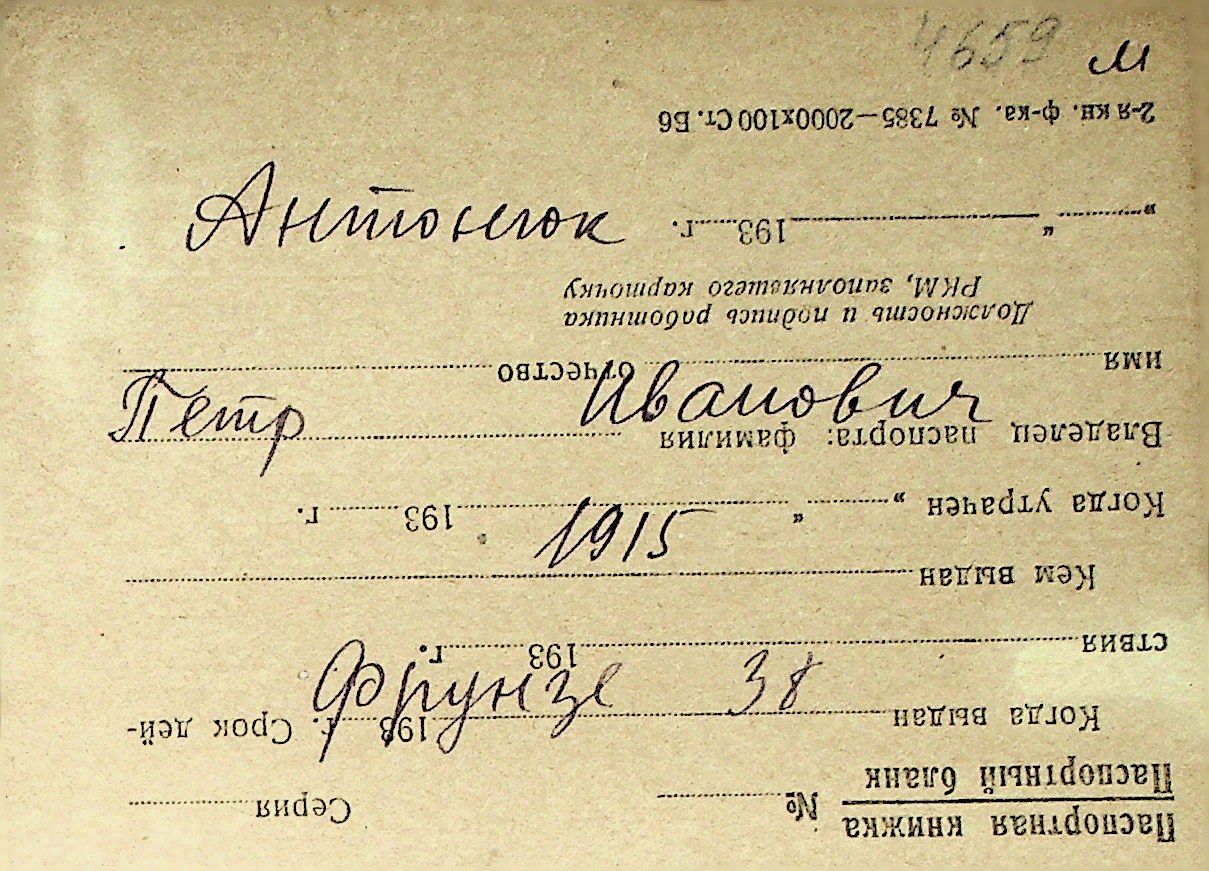 4659 м
Антонюк
Петр Иванович
1915
Фрунзе 38
Паспортная книжка № Серия
Паспортный бланк
Когда выдан 193 г. Срок дей-
ствия 193 г.
Кем выдан
Когда утрачен „ “ 193 г.
Владелец паспорта: фамилия
имя отчество
Должность и подпись работника
РКМ, заполнявшего карточку
„ “ 193 г.
2-я кн. ф-ка. № 7385—2000х100 Ст. Б6